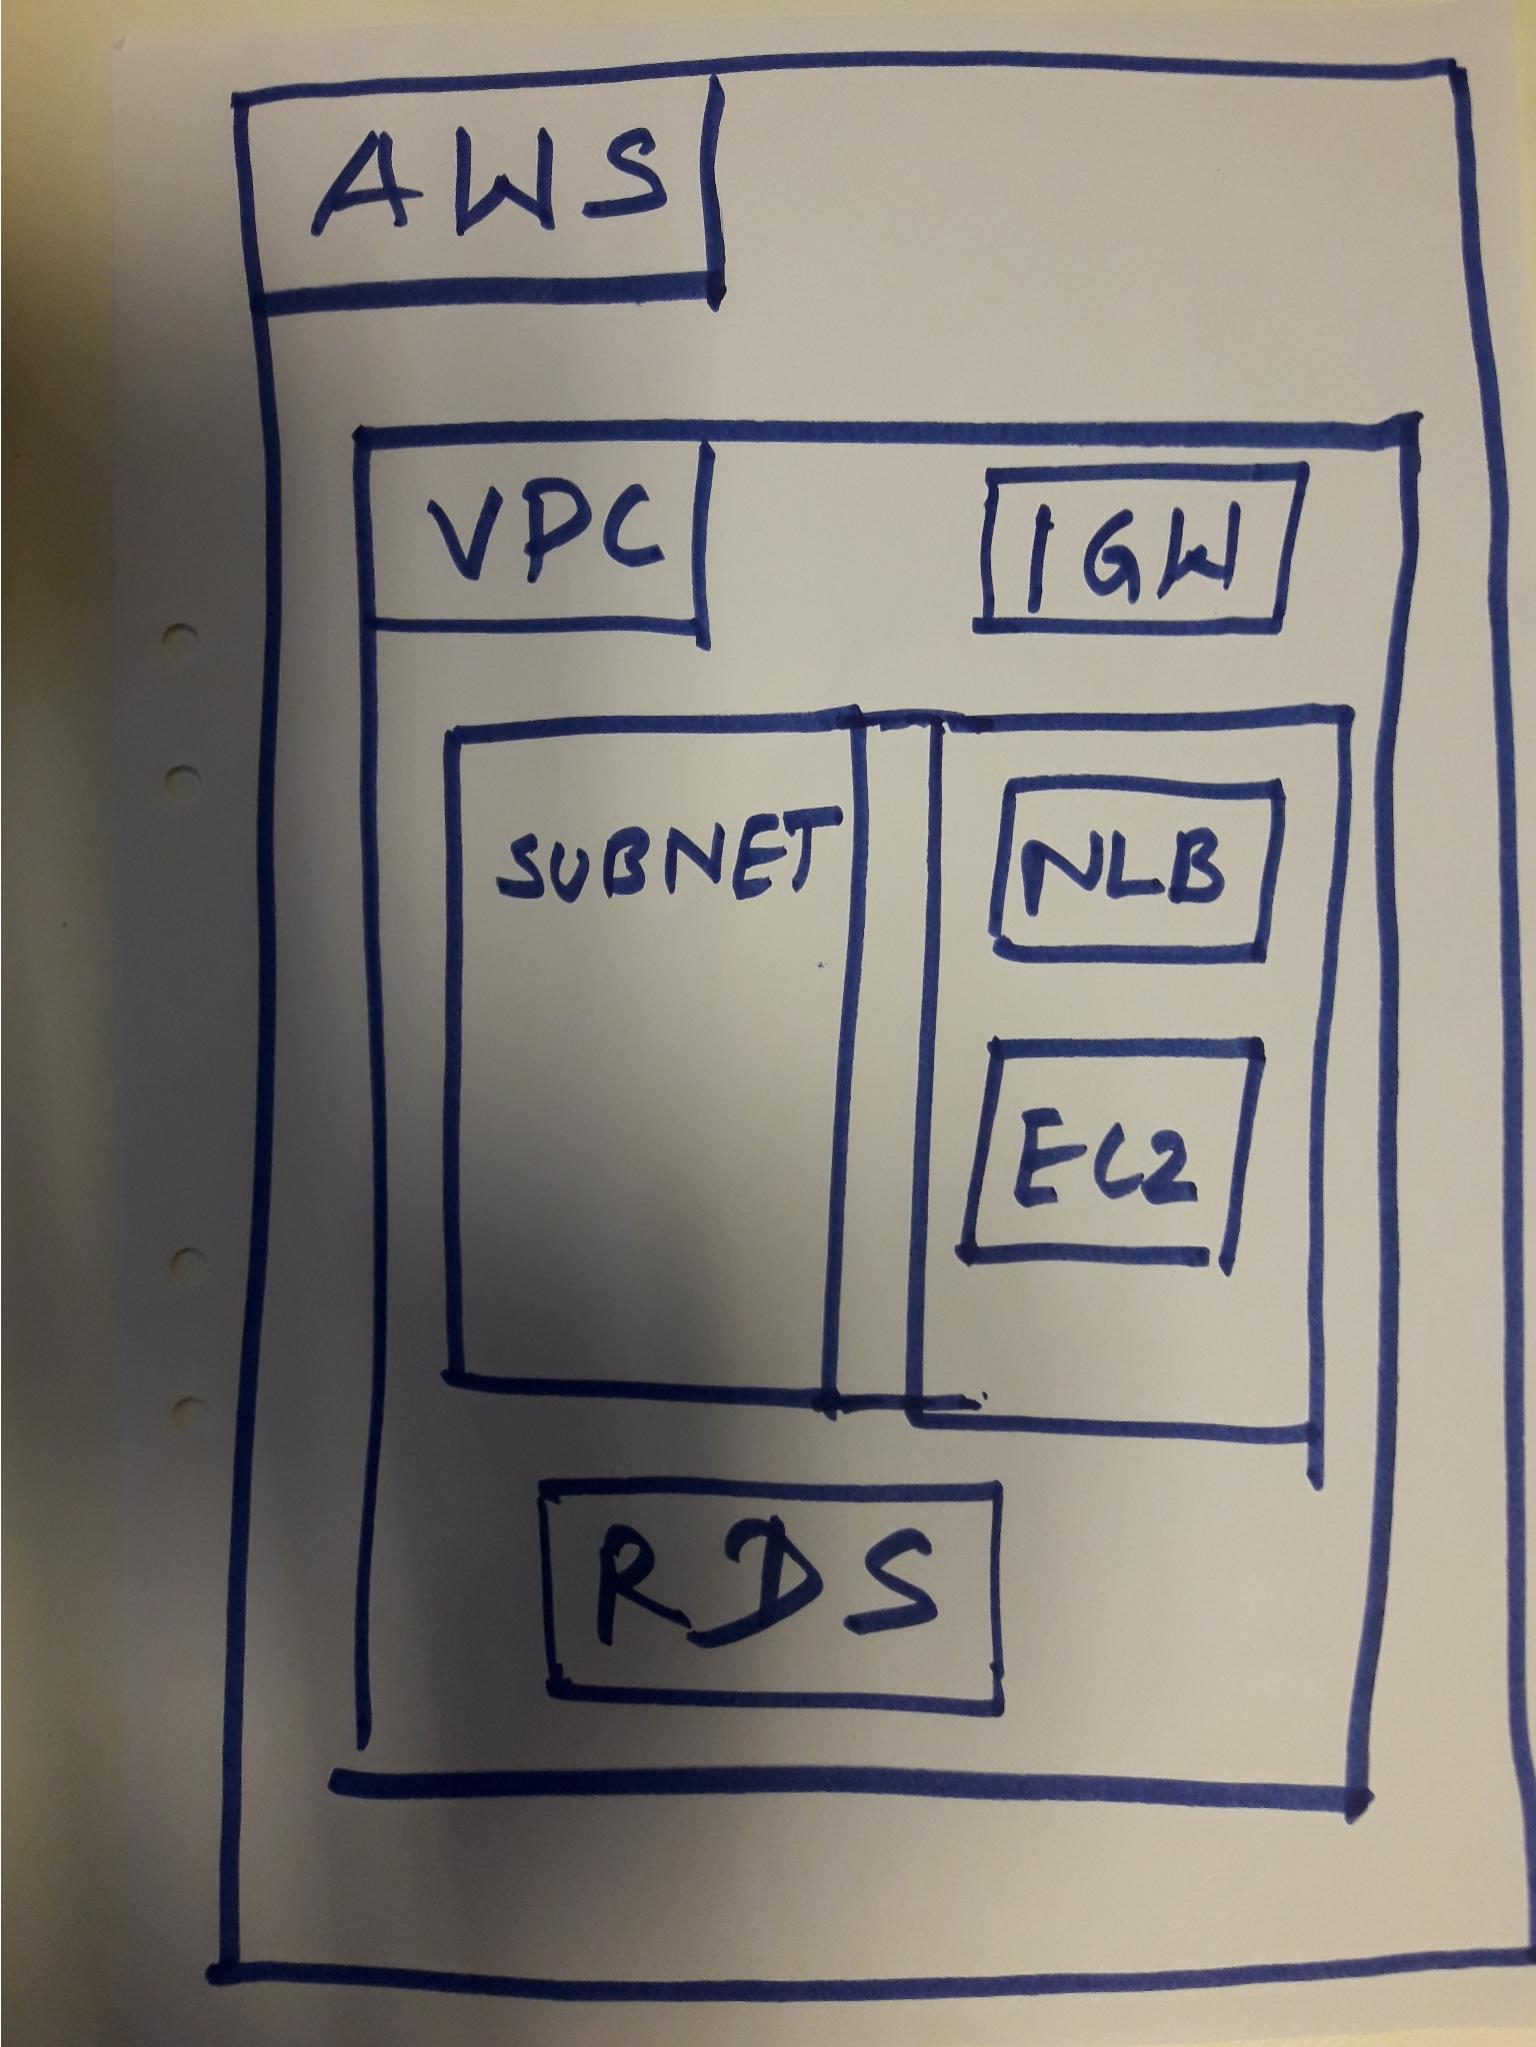 AWS
VPC
IGW
SUBNET
NLB
EC2
RDS